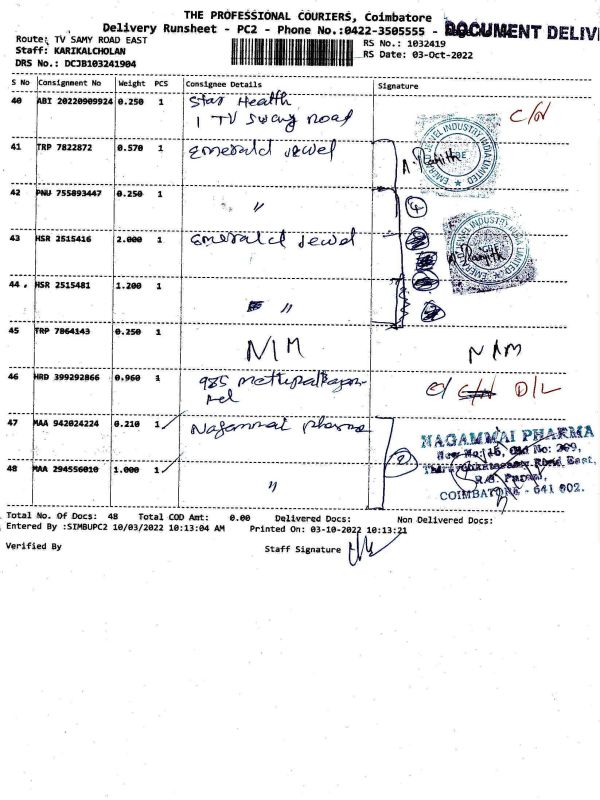 THE PROFESSIONAL COURIERS, Coimbatore
Delivery Runsheet - PC2 - Phone No.:0422-3505555 - DOCUMENT DELIV
Route: TV SAMY ROAD EAST
RS No.: 1032419
Staff: KARIKALCHOLAN
RS Date: 03-Oct-2022
DRS No.: DCJB103241904
S No Consignment No Weight PCS Consignee Details Signature
40 ABI 20220909924 0.250 1 Star Health
1 TV Swamy Road
41 TRP 7822872 0.570 1 Emerald Jewel
EMERALD JEWEL INDUSTRY INDIA LIMITED
42 PNU 755893447 0.250 1 "
4
43 HSR 2515416 2.000 1 Emerald Jewel
EMERALD JEWEL INDUSTRY INDIA LIMITED
44 HSR 2515481 1.200 1 "
45 TRP 7864143 0.250 1 N/M
46 HRD 399292866 0.960 1 985 Mettupalayam
D/L
47 MAA 942024224 0.210 1 Nagammai Pharma
2
NAGAMMAI PHARMA
New No: 16, Old No: 209,
Road East,
R.S. Puram,
COIMBATORE - 641 002.
48 MAA 294556010 1.000 1 "
Total No. Of Docs: 48 Total COD Amt: 0.00 Delivered Docs: Non Delivered Docs:
Entered By :SIMBUPC2 10/03/2022 10:13:04 AM Printed On: 03-10-2022 10:13:21
Verified By Staff Signature